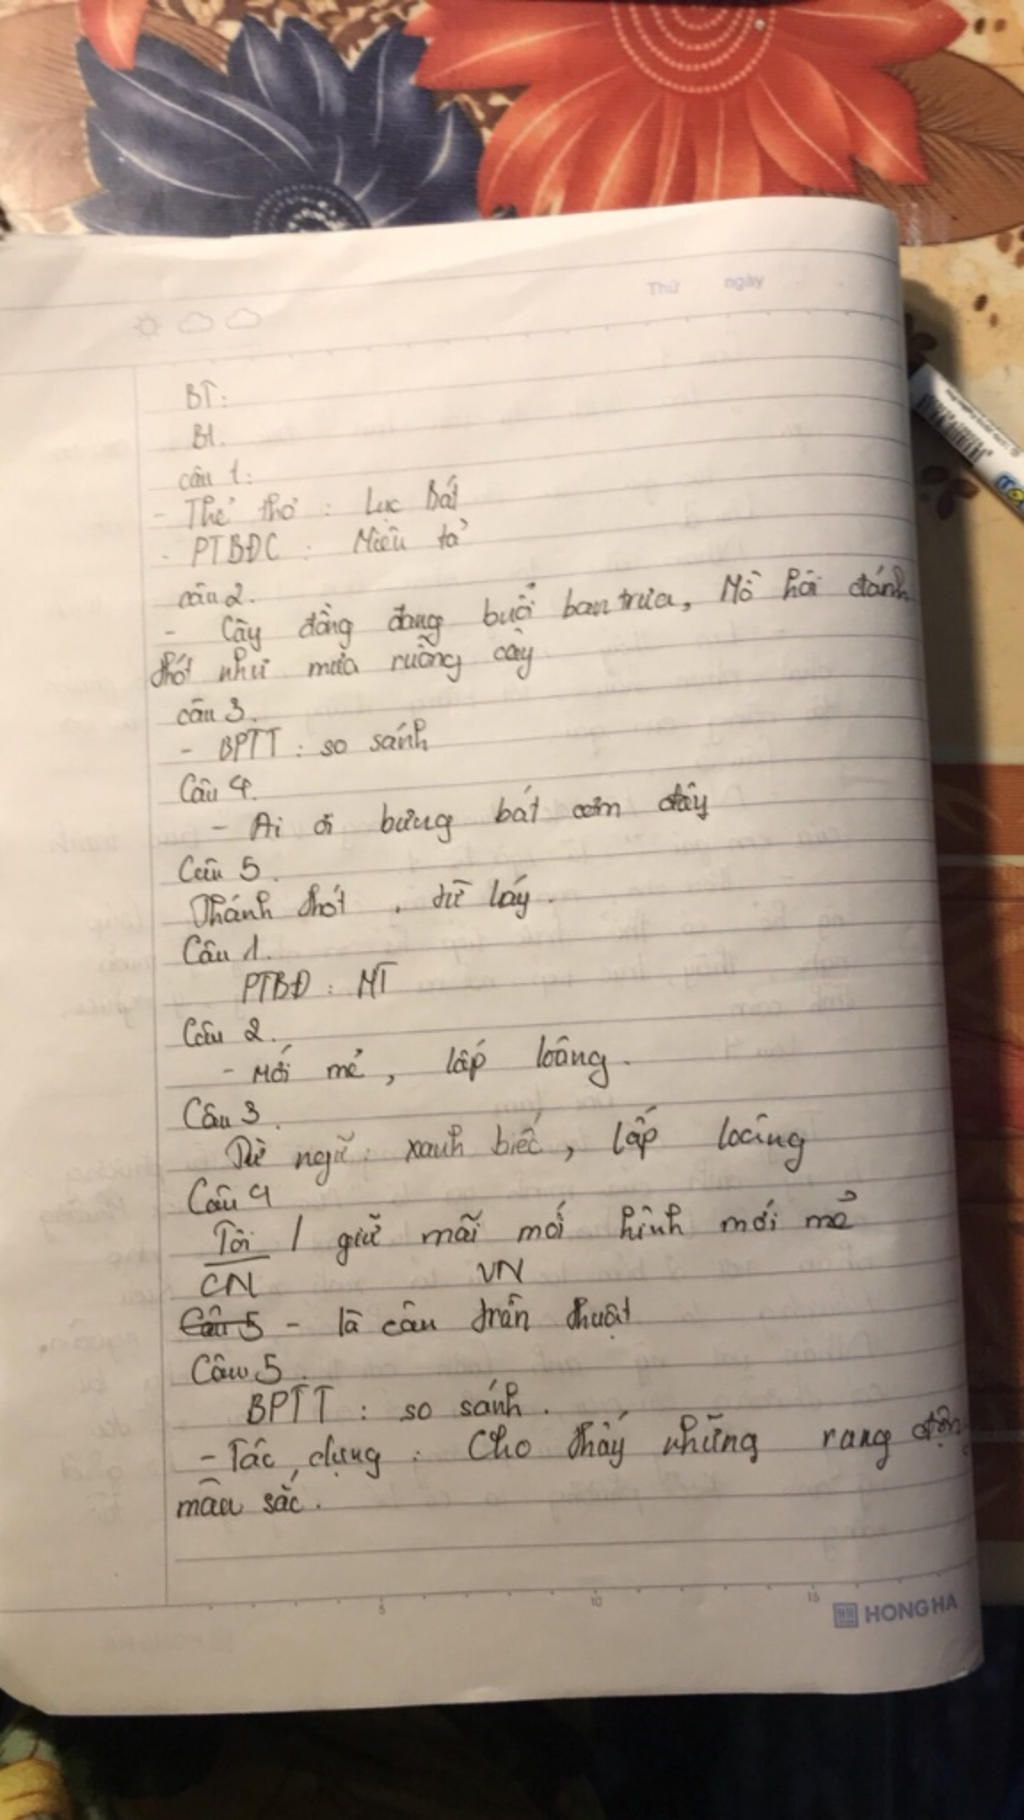 Thứ ngày
BT:
B1.
câu 1:
- Thể thơ : Lục Bát
- PTBĐC : Miêu tả
câu 2.
- Cày đồng đang buổi ban trưa, Mồ hôi thánh
thót như mưa ruộng cày
câu 3.
- BPTT : so sánh
Câu 4.
- Ai ơi bưng bát cơm đầy
Câu 5.
Thánh thót , từ láy.
Câu 1.
PTBĐ : MT
Câu 2.
- Mới mẻ, lấp loáng.
Câu 3.
Từ ngữ: xanh biếc, lấp loáng
Câu 4
Tôi / giữ mãi mối hình mới mẻ
CN VN
Câu 5 - là câu trần thuật
Câu 5.
BPTT : so sánh.
- Tác dụng : Cho thấy những rang
màu sắc.
5 10 15
HONG HA